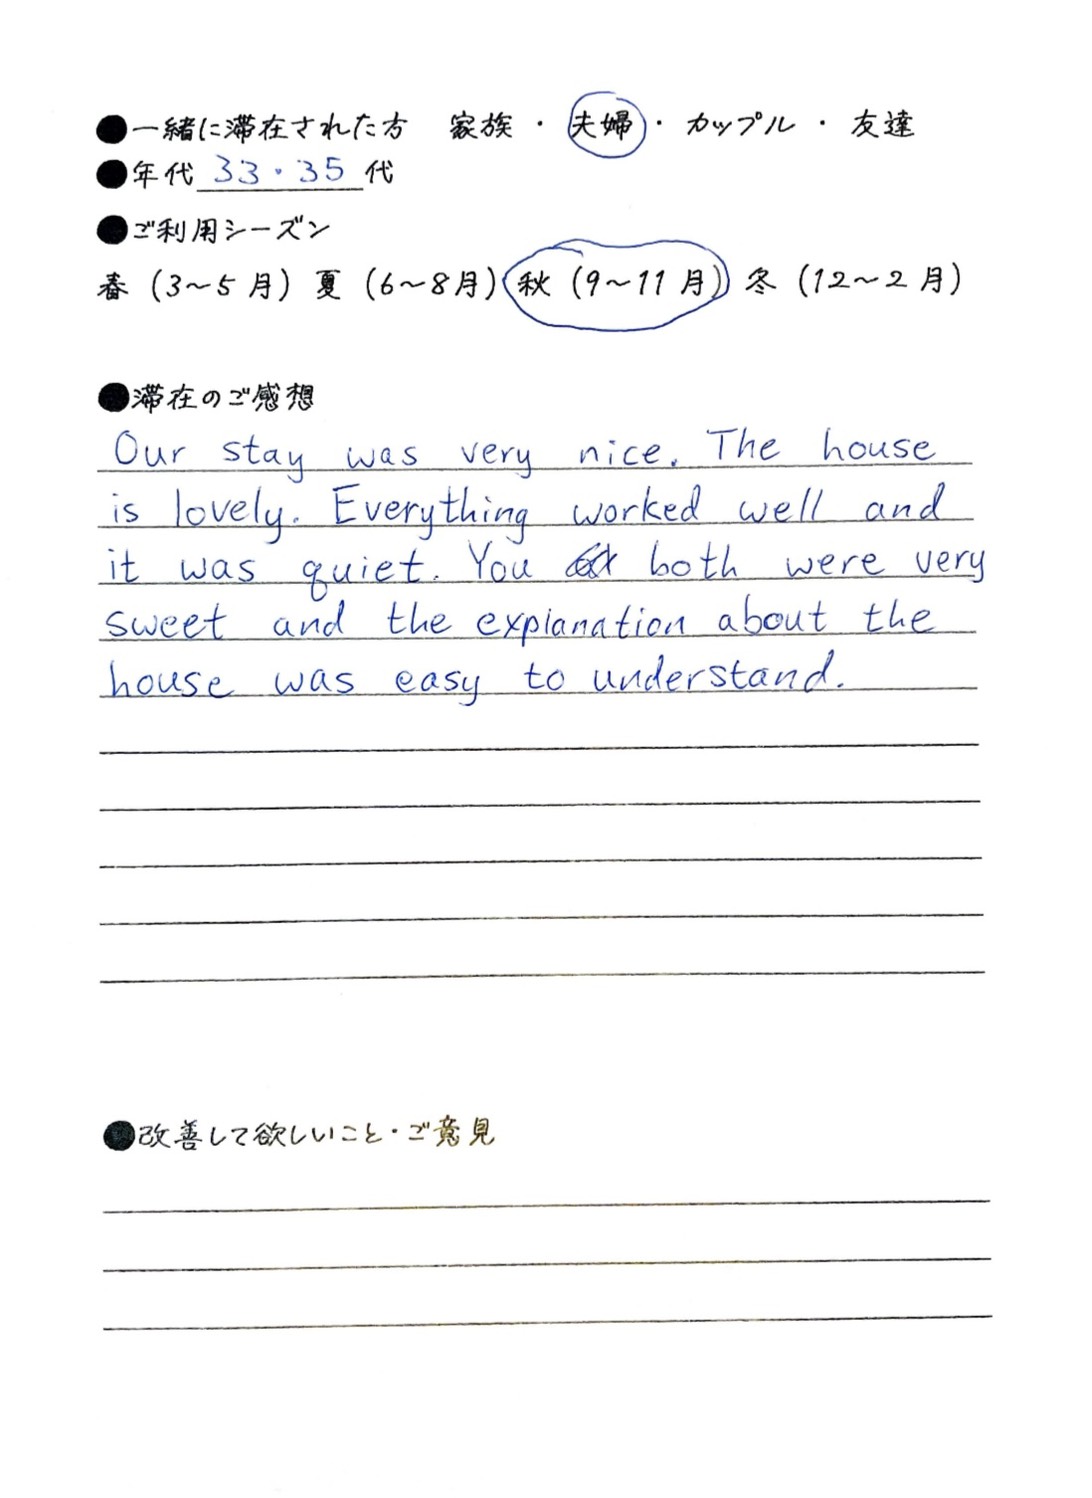 ●一緒に滞在された方 家族・夫婦・カップル・友達
●年代 33・35 代
●ご利用シーズン
春(3~5月)夏(6~8月)秋(9~11月)冬(12~2月)
●滞在のご感想
Our stay was very nice. The house
is lovely. Everything worked well and
it was quiet. You both were very
sweet and the explanation about the
house was easy to understand.
●改善して欲しいこと・ご意見